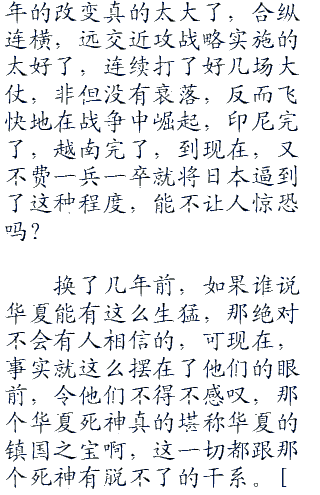 年的改变真的太大了，合纵
连横，远交近攻战略实施的
太好了，连续打了好几场大
仗，非但没有衰落，反而飞
快地在战争中崛起，印尼完
了，越南完了，到现在，又
不费一兵一卒就将日本逼到
了这种程度，能不让人惊恐
吗？
换了几年前，如果谁说
华夏能有这么生猛，那绝对
不会有人相信的，可现在，
事实就这么摆在了他们的眼
前，令他们不得不感叹，那
个华夏死神真的堪称华夏的
镇国之宝啊，这一切都跟那
个死神有脱不了的干系。[